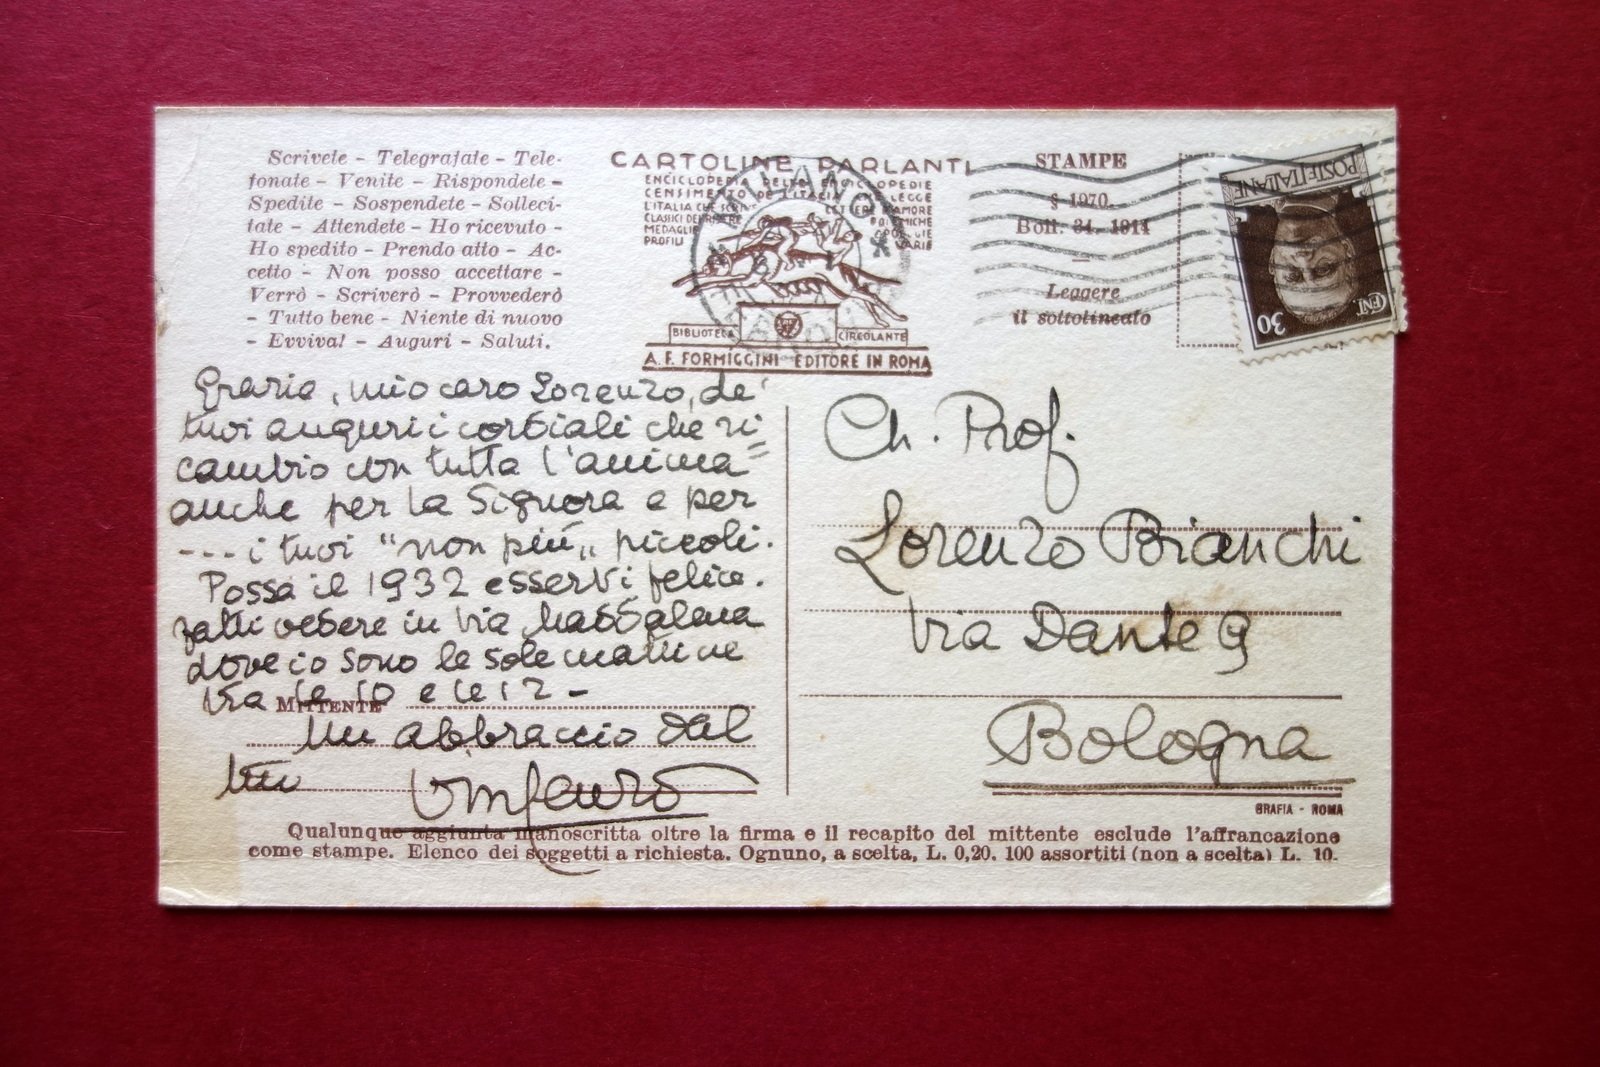 Scrivete - Telegrafate - Tele-
fonate - Venite - Rispondete -
Spedite - Sospendete - Solleci-
tate - Attendete - Ho ricevuto -
Ho spedito - Prendo atto - Ac-
cetto - Non posso accettare -
Verrò - Scriverò - Provvederò
- Tutto bene - Niente di nuovo
- Evviva! - Auguri - Saluti.
CARTOLINE PARLANTI
ENCICLOPEDIA DELLE ENCICLOPEDIE
CENSIMENTO DE L'ITALIA CHE LEGGE
L'ITALIA CHE SCRIVE LETTERE D'AMORE
CLASSICI DEL RIDERE
MEDAGLIE
PROFILI VARIE
MILANO
BIBLIOTECA CIRCOLANTE
A. F. FORMÍGGINI EDITORE IN ROMA
STAMPE
§ 1970.
Boll. 34. 1914
Leggere
il sottolineato
POSTE ITALIANE
CENT. 30
Grazie, mio caro Lorenzo, de'
tuoi augurii cordiali che ri=
cambio con tutta l'anima
anche per la Signora e per
--- i tuoi "non più" piccoli.
Possa il 1932 esservi felice.
fatti vedere in Via Maddalena
dove io sono le sole mattine
tra le 10 e le 12 -
MITTENTE
Un abbraccio dal
tuo
Ch. Prof.
Lorenzo Bianchi
Via Dante 9
Bologna
GRAFIA - ROMA
Qualunque aggiunta manoscritta oltre la firma e il recapito del mittente esclude l'affrancazione
come stampe. Elenco dei soggetti a richiesta. Ognuno, a scelta, L. 0,20. 100 assortiti (non a scelta) L. 10.